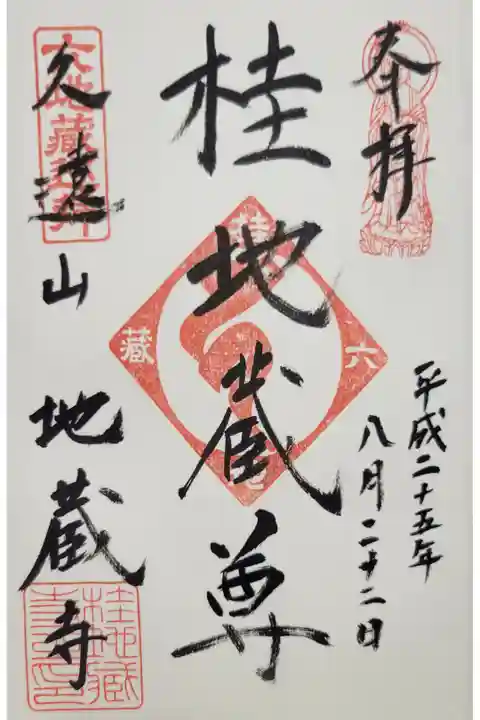 奉拝
平成二十五年
八月二十二日
桂地蔵尊
六
地
蔵
久遠山
地蔵寺
六地蔵
桂地蔵